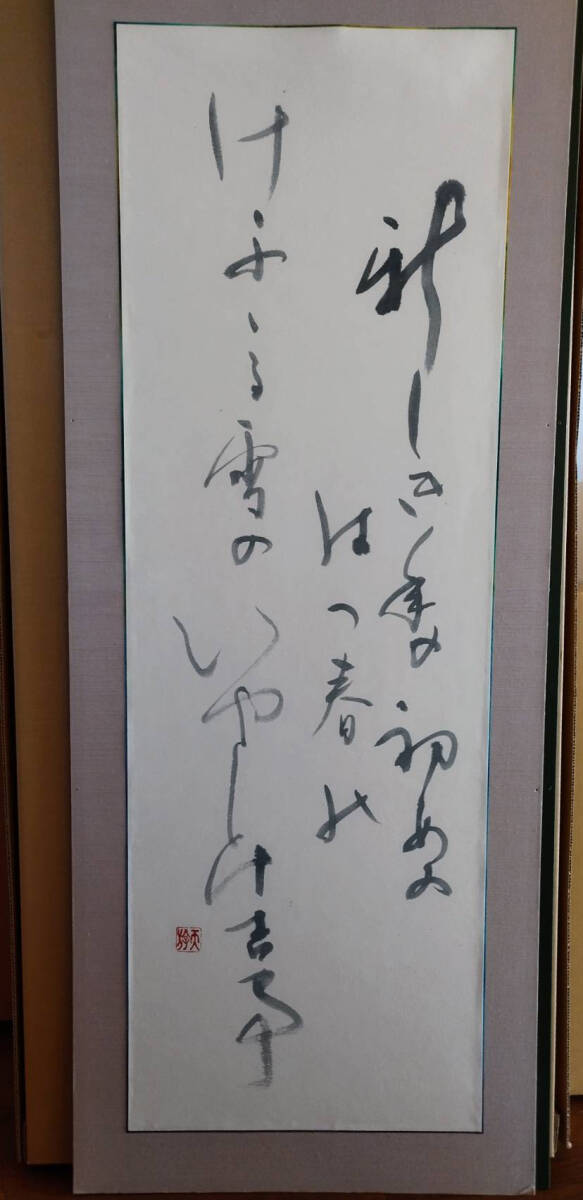 新しき年の初めの
はつ春の
けふふる雪のいやしけ吉事